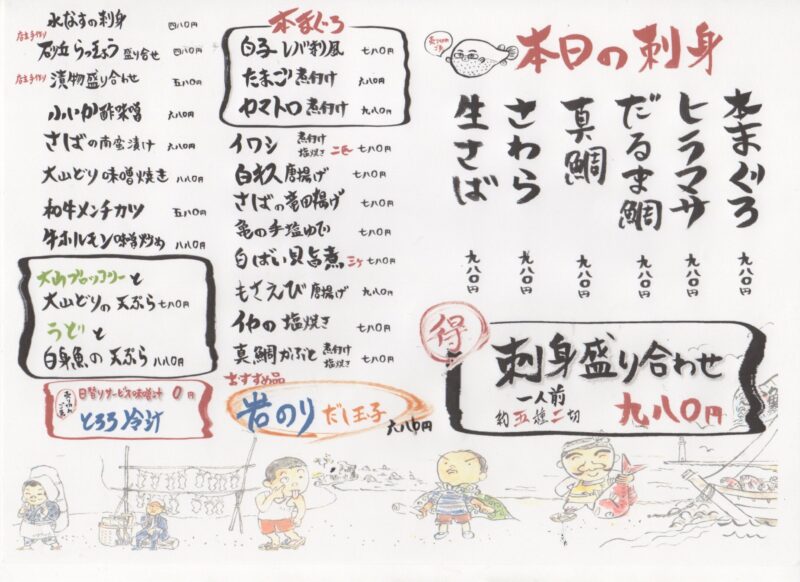 水なすの刺身 四八〇円
店主手作り 砂丘らっきょう 盛り合せ 四八〇円
店主手作り 漬物盛り合わせ 五八〇円
ホタルいか酢味噌 六八〇円
さばの南蛮漬け 六八〇円
大山どり味噌焼き 八八〇円
和牛メンチカツ 五八〇円
牛ホルモン味噌炒め 八八〇円
大山ブロッコリーと
大山どりの天ぷら 七八〇円
うどと
白身魚の天ぷら 八八〇円
日替りサービス味噌汁 0円
とろろ冷汁
本まぐろ
白子レバ刺風 七八〇円
たまご煮付け 六八〇円
カマトロ煮付け 九八〇円
イワシ 煮付け 塩焼き 二匹 七八〇円
白キス唐揚げ 七八〇円
さばの竜田揚げ 七八〇円
亀の手塩ゆで 七八〇円
白ばい貝旨煮 三ケ 七八〇円
もさえび唐揚げ 九八〇円
イカの塩焼き 七八〇円
真鯛かぶと 煮付け 塩焼き 七八〇円
おすすめ品
岩のりだし玉子 六八〇円
本日の刺身
本まぐろ 九八〇円
ヒラマサ 九八〇円
だるま鯛 九八〇円
真鯛 九八〇円
さわら 九八〇円
生さば 九八〇円
得
刺身盛り合わせ
一人前
約五種二切 九八〇円